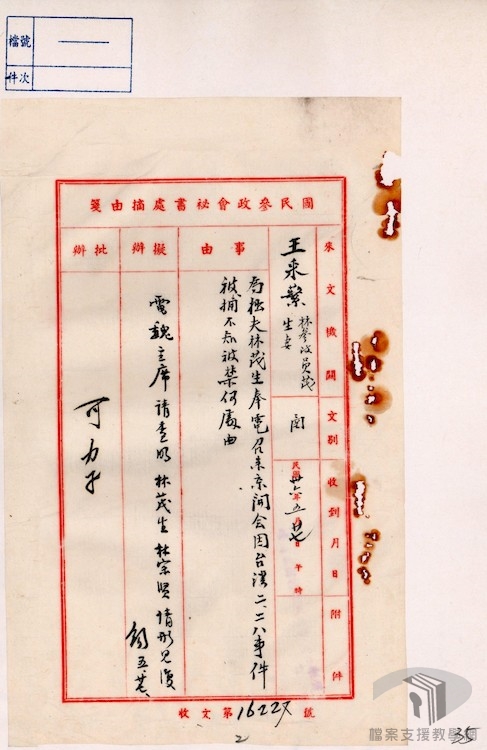 檔號
件次
國民參政會祕書處摘由箋
來文機關
王采蘩
林參政員茂
生妻
文別
函
收到月日
民國卅六年五月廿七日午時
附件
事由
為極夫林茂生奉電召來京開會因台灣二、二八事件
被捕不知被禁何處由
擬辦
電魏主席請查明林茂生林宗賢情形見復
五、廿七
批辦
可 力子
收文第16227號
2
檔案支援教學網
35